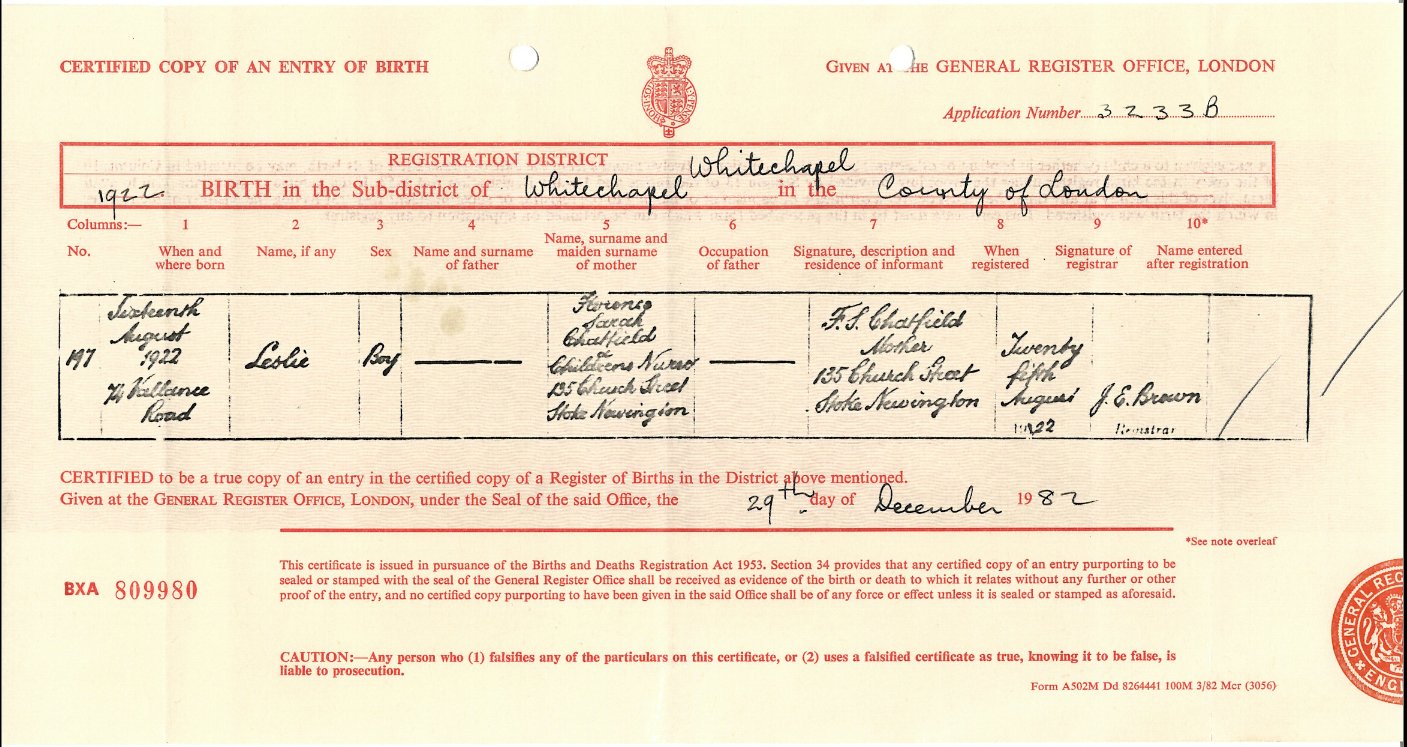 CERTIFIED COPY OF AN ENTRY OF BIRTH
GIVEN AT THE GENERAL REGISTER OFFICE, LONDON
Application Number 3233B
REGISTRATION DISTRICT Whitechapel
1922 BIRTH in the Sub-district of Whitechapel in the County of London
Columns:— 1 2 3 4 5 6 7 8 9 10*
No.
When and
where born
Name, if any
Sex
Name and surname
of father
Name, surname and
maiden surname
of mother
Occupation
of father
Signature, description and
residence of informant
When
registered
Signature of
registrar
Name entered
after registration
197
Sixteenth
August
1922
74 Vallance
Road
Leslie
Boy
Florence
Sarah
Chatfield
a
Childrens Nurse
135 Church Street
Stoke Newington
F. S. Chatfield
Mother
135 Church Street
Stoke Newington
Twenty
fifth
August
1922
J. E. Brown
Registrar
CERTIFIED to be a true copy of an entry in the certified copy of a Register of Births in the District above mentioned.
Given at the GENERAL REGISTER OFFICE, LONDON, under the Seal of the said Office, the 29th day of December 1982
*See note overleaf
BXA 809980
This certificate is issued in pursuance of the Births and Deaths Registration Act 1953. Section 34 provides that any certified copy of an entry purporting to be
sealed or stamped with the seal of the General Register Office shall be received as evidence of the birth or death to which it relates without any further or other
proof of the entry, and no certified copy purporting to have been given in the said Office shall be of any force or effect unless it is sealed or stamped as aforesaid.
CAUTION:—Any person who (1) falsifies any of the particulars on this certificate, or (2) uses a falsified certificate as true, knowing it to be false, is
liable to prosecution.
Form A502M Dd 8264441 100M 3/82 Mcr (3056)
GENERAL REG
ENG